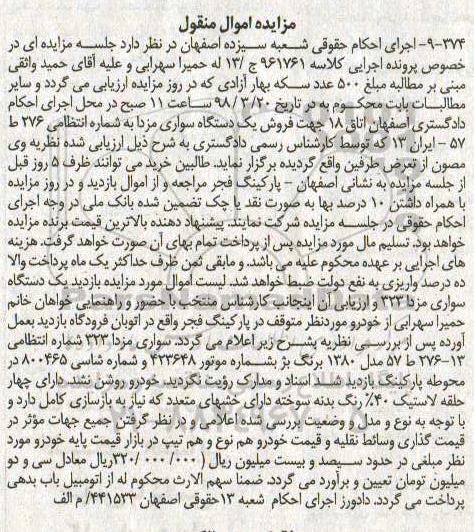 مزایده اموال منقول
۹-۳۷۴- اجرای احکام حقوقی شعبه سیزده اصفهان در نظر دارد جلسه مزایده ای در
خصوص پرونده اجرایی کلاسه ۹۶۱۷۶۱ ج /۱۳ له حمیرا سهرابی و علیه آقای حمید واثقی
مبنی بر مطالبه مبلغ ۵۰۰ عدد سکه بهار آزادی که در روز مزایده ارزیابی می گردد و سایر
مطالبات بابت محکوم به در تاریخ ۹۸/۳/۲۰ ساعت ۱۱ صبح در محل اجرای احکام
دادگستری اصفهان اتاق ۱۸ جهت فروش یک دستگاه سواری مزدا به شماره انتظامی ۲۷۶ ط
۵۷ – ایران ۱۳ که توسط کارشناس رسمی دادگستری به شرح ذیل ارزیابی شده نظریه وی
مصون از تعرض طرفین واقع گردیده برگزار نماید. طالبین خرید می توانند ظرف ۵ روز قبل
از جلسه مزایده به نشانی اصفهان – پارکینگ فجر مراجعه و از اموال بازدید و در روز مزایده
با همراه داشتن ۱۰ درصد بها به صورت نقد یا چک تضمین شده بانک ملی در وجه اجرای
احکام حقوقی در جلسه مزایده شرکت نمایند. پیشنهاد دهنده بالاترین قیمت برنده مزایده
خواهد بود. تسلیم مال مورد مزایده پس از پرداخت تمام بهای آن صورت خواهد گرفت. هزینه
های اجرایی بر عهده محکوم علیه می باشد. و مابقی ثمن ظرف حداکثر یک ماه پرداخت والا
ده درصد واریزی به نفع دولت ضبط خواهد شد. لیست اموال مورد مزایده بازدید یک دستگاه
سواری مزدا ۳۲۳ و ارزیابی آن اینجانب کارشناس منتخب با حضور و راهنمایی خواهان خانم
حمیرا سهرابی از خودرو موردنظر متوقف در پارکینگ فجر واقع در اتوبان فرودگاه بازدید بعمل
آورده پس از بررسی نظریه بشرح زیر اعلام می گردد. سواری مزدا ۳۲۳ شماره انتظامی
۱۳-۲۷۶ ط ۵۷ مدل ۱۳۸۰ برنگ بژ بشماره موتور ۴۲۳۶۴۸ و شماره شاسی ۸۰۰۴۶۵ در
محوطه پارکینگ بازدید شد اسناد و مدارک رویت نگردید. خودرو روشن نشد. دارای چهار
حلقه لاستیک ۴۰٪ رنگ بدنه سوخته دارای خشهای متعدد که نیاز به بازسازی کامل دارد و
با توجه به نوع و مدل و وضعیت بررسی شده اعلامی و در نظر گرفتن جمیع جهات مؤثر در
قیمت گذاری وسائط نقلیه و قیمت خودرو هم نوع و هم تیپ در بازار قیمت پایه خودرو مورد
نظر مبلغی در حدود سیصد و بیست میلیون ریال (۳۲۰/۰۰۰/۰۰۰ریال معادل سی و دو
میلیون تومان تعیین و برآورد می گردد. ضمنا سهم الارث محکوم له از اتومبیل باب بدهی
پرداخت می گردد. دادورز اجرای احکام شعبه ۱۳حقوقی اصفهان ۴۴۱۵۳۳/ م الف